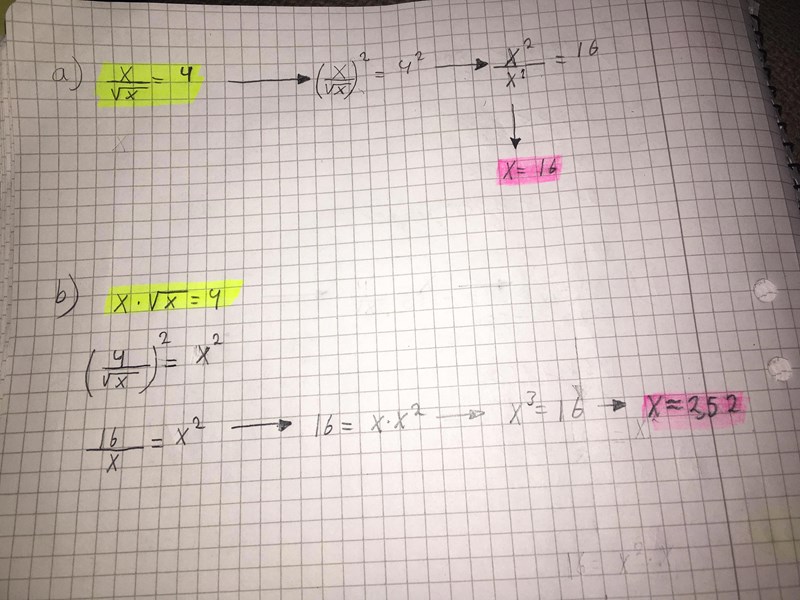 a) x/√x = 4 → (x/√x)² = 4² → x²/x¹ = 16
↓
x = 16
b) x · √x = 4
(4/√x)² = x²
16/x = x² → 16 = x · x² → x³ = 16 → x ≈ 2,52
16 = x² · x